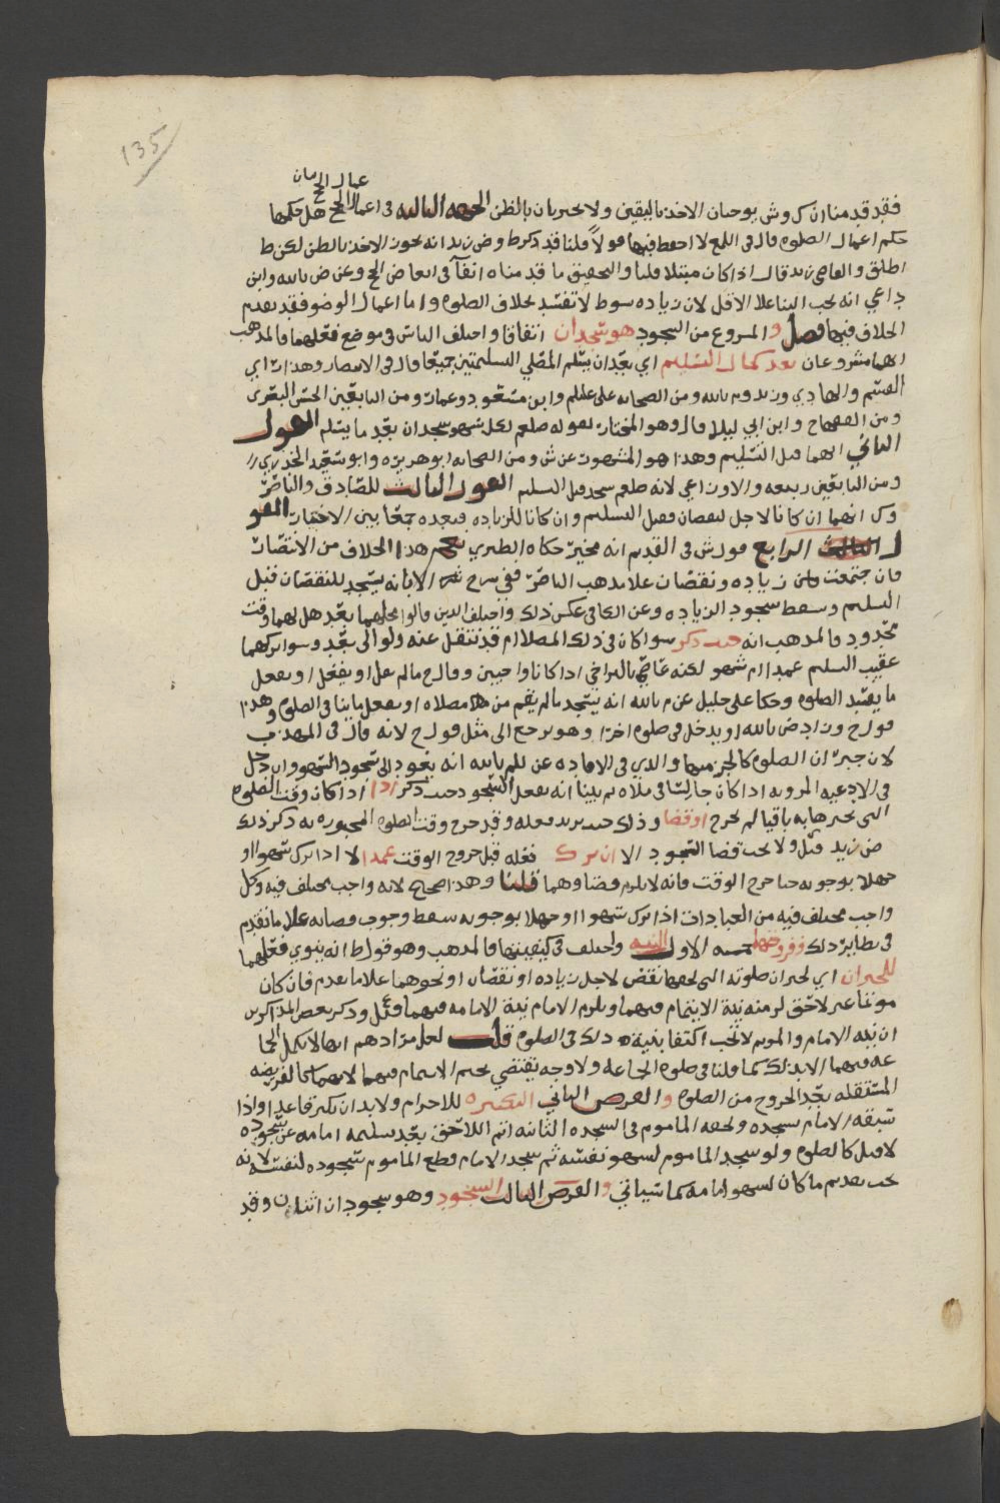 135
فقد قدمنا ان ك وش يوجبان الاخذ باليقين ولا يخيران بالظن الجهه الثالثه في اعمال الحج هل حكمها
حكم اعمال الصلوه قال في اللمع لا احفظ فيها قولاً قلنا قد ذكر ط وض زيد انه يجوز الاخذ بالظن لكن ط
اطلق والقاضي زيد قال اذا كان مبتلا قلنا والتحقيق ما قدمناه انفاً في
انه يجب البنا علا الاقل لان زياده شوط لا تفسد بخلاف الصلوه واما اعمال الوضو فقد تقدم
الخلاف فيها فصل والمشروع من السجود هو سجدتان اتفاقا واختلف الناس في موضع فعلهما فالمذهب
انهما مشروعان بعد كمال التسليم اي بعد ان يسلم المصلي التسليمتين جميعا قال في الانتصار وهذا راي
القسم والهادي وزيد وم بالله ومن الصحابه علي عليلم وابن مسعود وعمار ومن التابعين الحسن البصري
ومن الفقهاح وابن ابي ليلا قال وهو المختار لقوله صلعم لكل سهو سجدتان بعد ما يسلم القول
الثاني انهما قبل التسليم وهذا هو المشهور عن ش ومن الصحابه ابو هريره وابو سعيد الخدري
ومن التابعين ربيعه والاوزاعي لانه صلعم سجد قبل التسليم القول الثالث للصادق والناصر
وك انهما ان كانا لاجل نقصان فقبل التسليم وان كانا للزياده فبعده جمعا بين الاخبار القو
ل الرابع قول ش في القديم انه مخير حكاه الطبري نعم هذا الخلاف من الانتصار
فان اجتمعت زياده ونقصان علا مذهب الناصر ففي شرح الابانه يسجد للنقصان قبل
التسليم وسقط سجود الزياده وعن الكافي عكس ذلك واختلف الذين قالوا محلهما بعد هل لهما وقت
محدود فالمذهب انه حيث ذكر سوا كان في ذلك المصلا ام قد انتقل عنه ولو الى بعد وسوا تركهما
عقيب التسليم عمدا ام سهو لكنه عاص بالتراخي اذا كانا واجبين وقال ح مالم
ما يفسد الصلوه وحكا علي خليل عن م بالله انه يسجد مالم يقم من مصلاه او يفعل ما ينافي الصلوه وهذا
قول ح وزاد ض بالله او يدخل في صلوه اخرا وهو يرجع الى مثل قول ح لانه قال في المهذب
لان جبران الصلوه كالجز منها والذي في الافاده عن م بالله انه يعود الى سجود السهو وان دخل
في الادعيه المرويه اذا كان جالسا في مصلاه ثم بينا انه يفعل السجود حيث ذكر ادا اذا كان وقت الصلوه
التي تجبرها به باقيا لم يخرج او قضا وذلك حيث يريد فعله وقد خرج وقت الصلوه المجبوره به ذكر ذلك
ض زيد قيل ولا يجب قضا السجود الا ان ترك فعله قبل خروج الوقت عمدا لا اذا ترك سهوا او
جهلا بوجوبه حتا خرج الوقت فانه لا يلزم قضاوهما قلنا وهذا صحيح لانه واجب مختلف فيه وكل
واجب مختلف فيه من العبادات اذا ترك سهوا او جهلا بوجوبه سقط وجوب قضائه علا ما تقدم
في نظاير ذلك وفروضها خمسه الاول النيه واختلف في كيفيتها فالمذهب وهو قول ط انه ينوي فعلهما
للجبران اي لجبران صلوته التي لحقها نقص لاجل زياده او نقصان او نحوهما علا ما تقدم فان كان
موتما غير لاحق لزمته نية الايتمام فيهما ويلزم الامام نية الامامه فيهما وذكر بعض المذاكرين
ان نيه الامام والموتم لا تجب اكتفا بنية ذلك في الصلوه قلت لعل مرادهم انها لا تكمل الجما
عه فيهما الا بذلك كما قلنا في صلوه الجماعه ولا وجه يقتضي تحتم الايتمام فيهما لانهما كالفريضه
المستقله بعد الخروج من الصلوه والفرض الثاني التكبيره للاحرام ولا بد ان يكبر قاعدا واذا
سبقه الامام بسجده ولحقه الماموم في السجده الثانيه اتم اللاحق بعد تسليم امامه عن سجوده
لا قبل كالصلوه ولو سجد الماموم لسهو نفسه ثم سجد الامام قطع الماموم سجوده لنفسه لانه
يجب تقديم ما كان لسهو امامه كما سياتي والفرض الثالث السجود وهو سجودان اثنان وقد